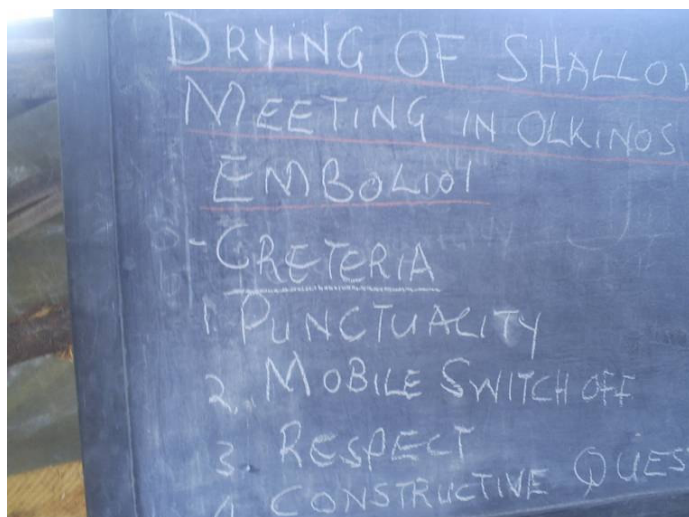 DRYING OF SHALLOW
MEETING IN OLKINOS
EMBOLIOI
- CRETERIA
1. PUNCTUALITY
2. MOBILE SWITCH OFF
3. RESPECT
4 CONSTRUCTIVE QUES